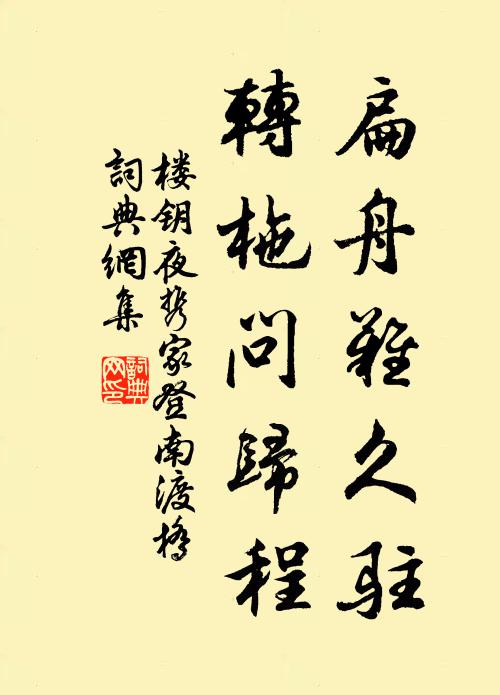 扁舟難久駐
轉柂問歸程
楼钥夜携家登南渡橋
詞典網集
詞典
网印